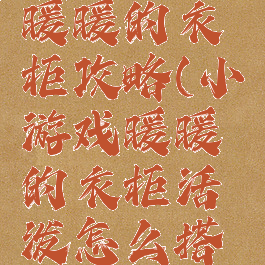 暖暖的衣
柜攻略(小
游戏暖暖
的衣柜活
泼怎么搭